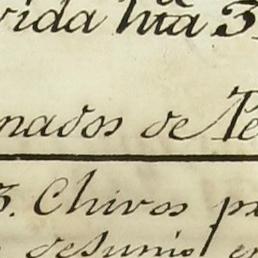 vida hta 3
nados de Te
3. Chivos p
desunio